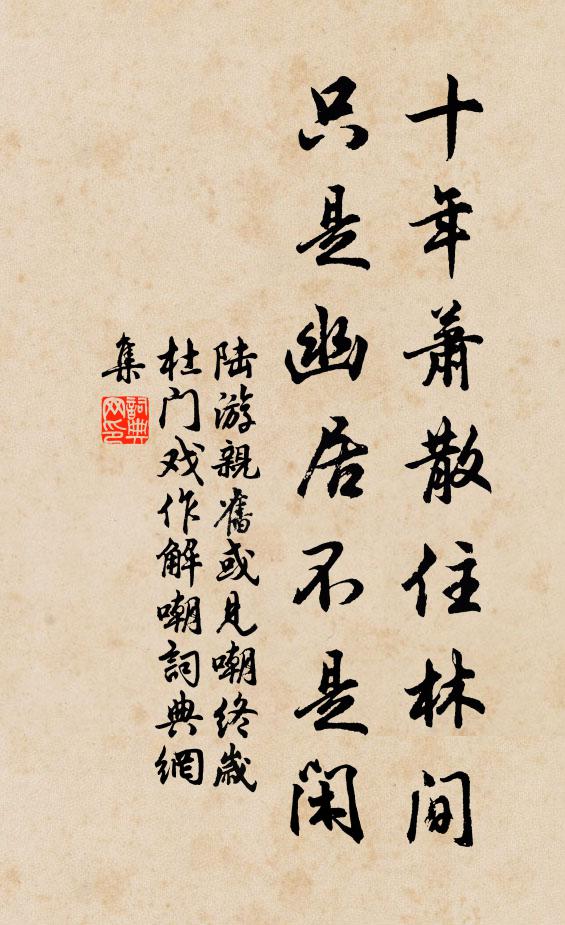 十年萧散住林間
只是幽居不是闲
陆游親舊或見嘲终歲
杜门戏作解嘲詞典網
集
詞典网印